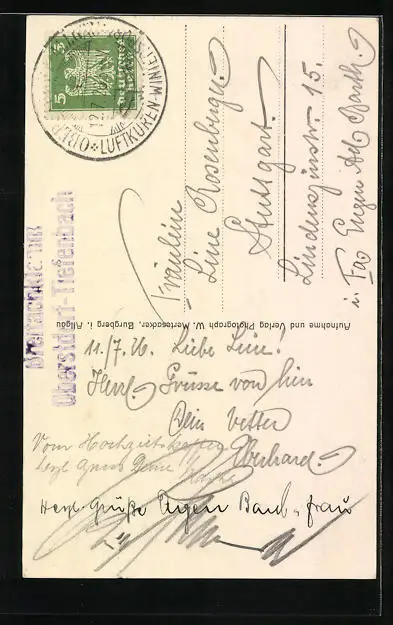 5
5
Deutsches Reich
OBER
LUFTKUREN-WINTER
Breitachklamm
Oberstdorf-Tiefenbach
Fräulein
Line Rosenberger.
Stuttgart.
Lindenspürstr. 15.
i. Fa. Eugen Ad. Barth.
Aufnahme und Verlag Photograph W. Mertesacker, Burgberg i. Allgäu
11./7.26. Liebe Line!
Herzl. Grüsse von hier
Dein Vetter
Eberhard.
Vom Hochzeits
herzl. Gruss Deine
Herzl. Grüße Eugen Baub. u. frau